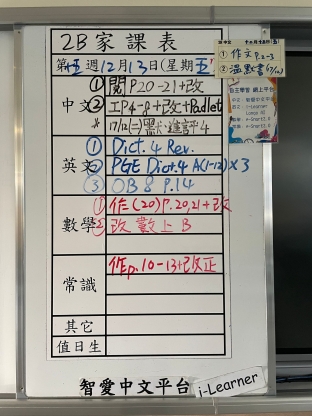 2B家課表
第十五週12月13日(星期五)
中文
① 閱P20-21+改
② 工P4-8+改+Padlet
* 17/12(二)默進評4
英文
① Dict.4 Rev.
② PGE Dict.4 A(1-12)×3
③ OB8 P.14
數學
① 作(20)P.20,21+改
② 改數上B
常識
作p.10-13+改正
其它
值日生
智愛中文平台
i-Learner
① 作文P.2-3
② 溫默書(17/12)
自主學習 網上平台